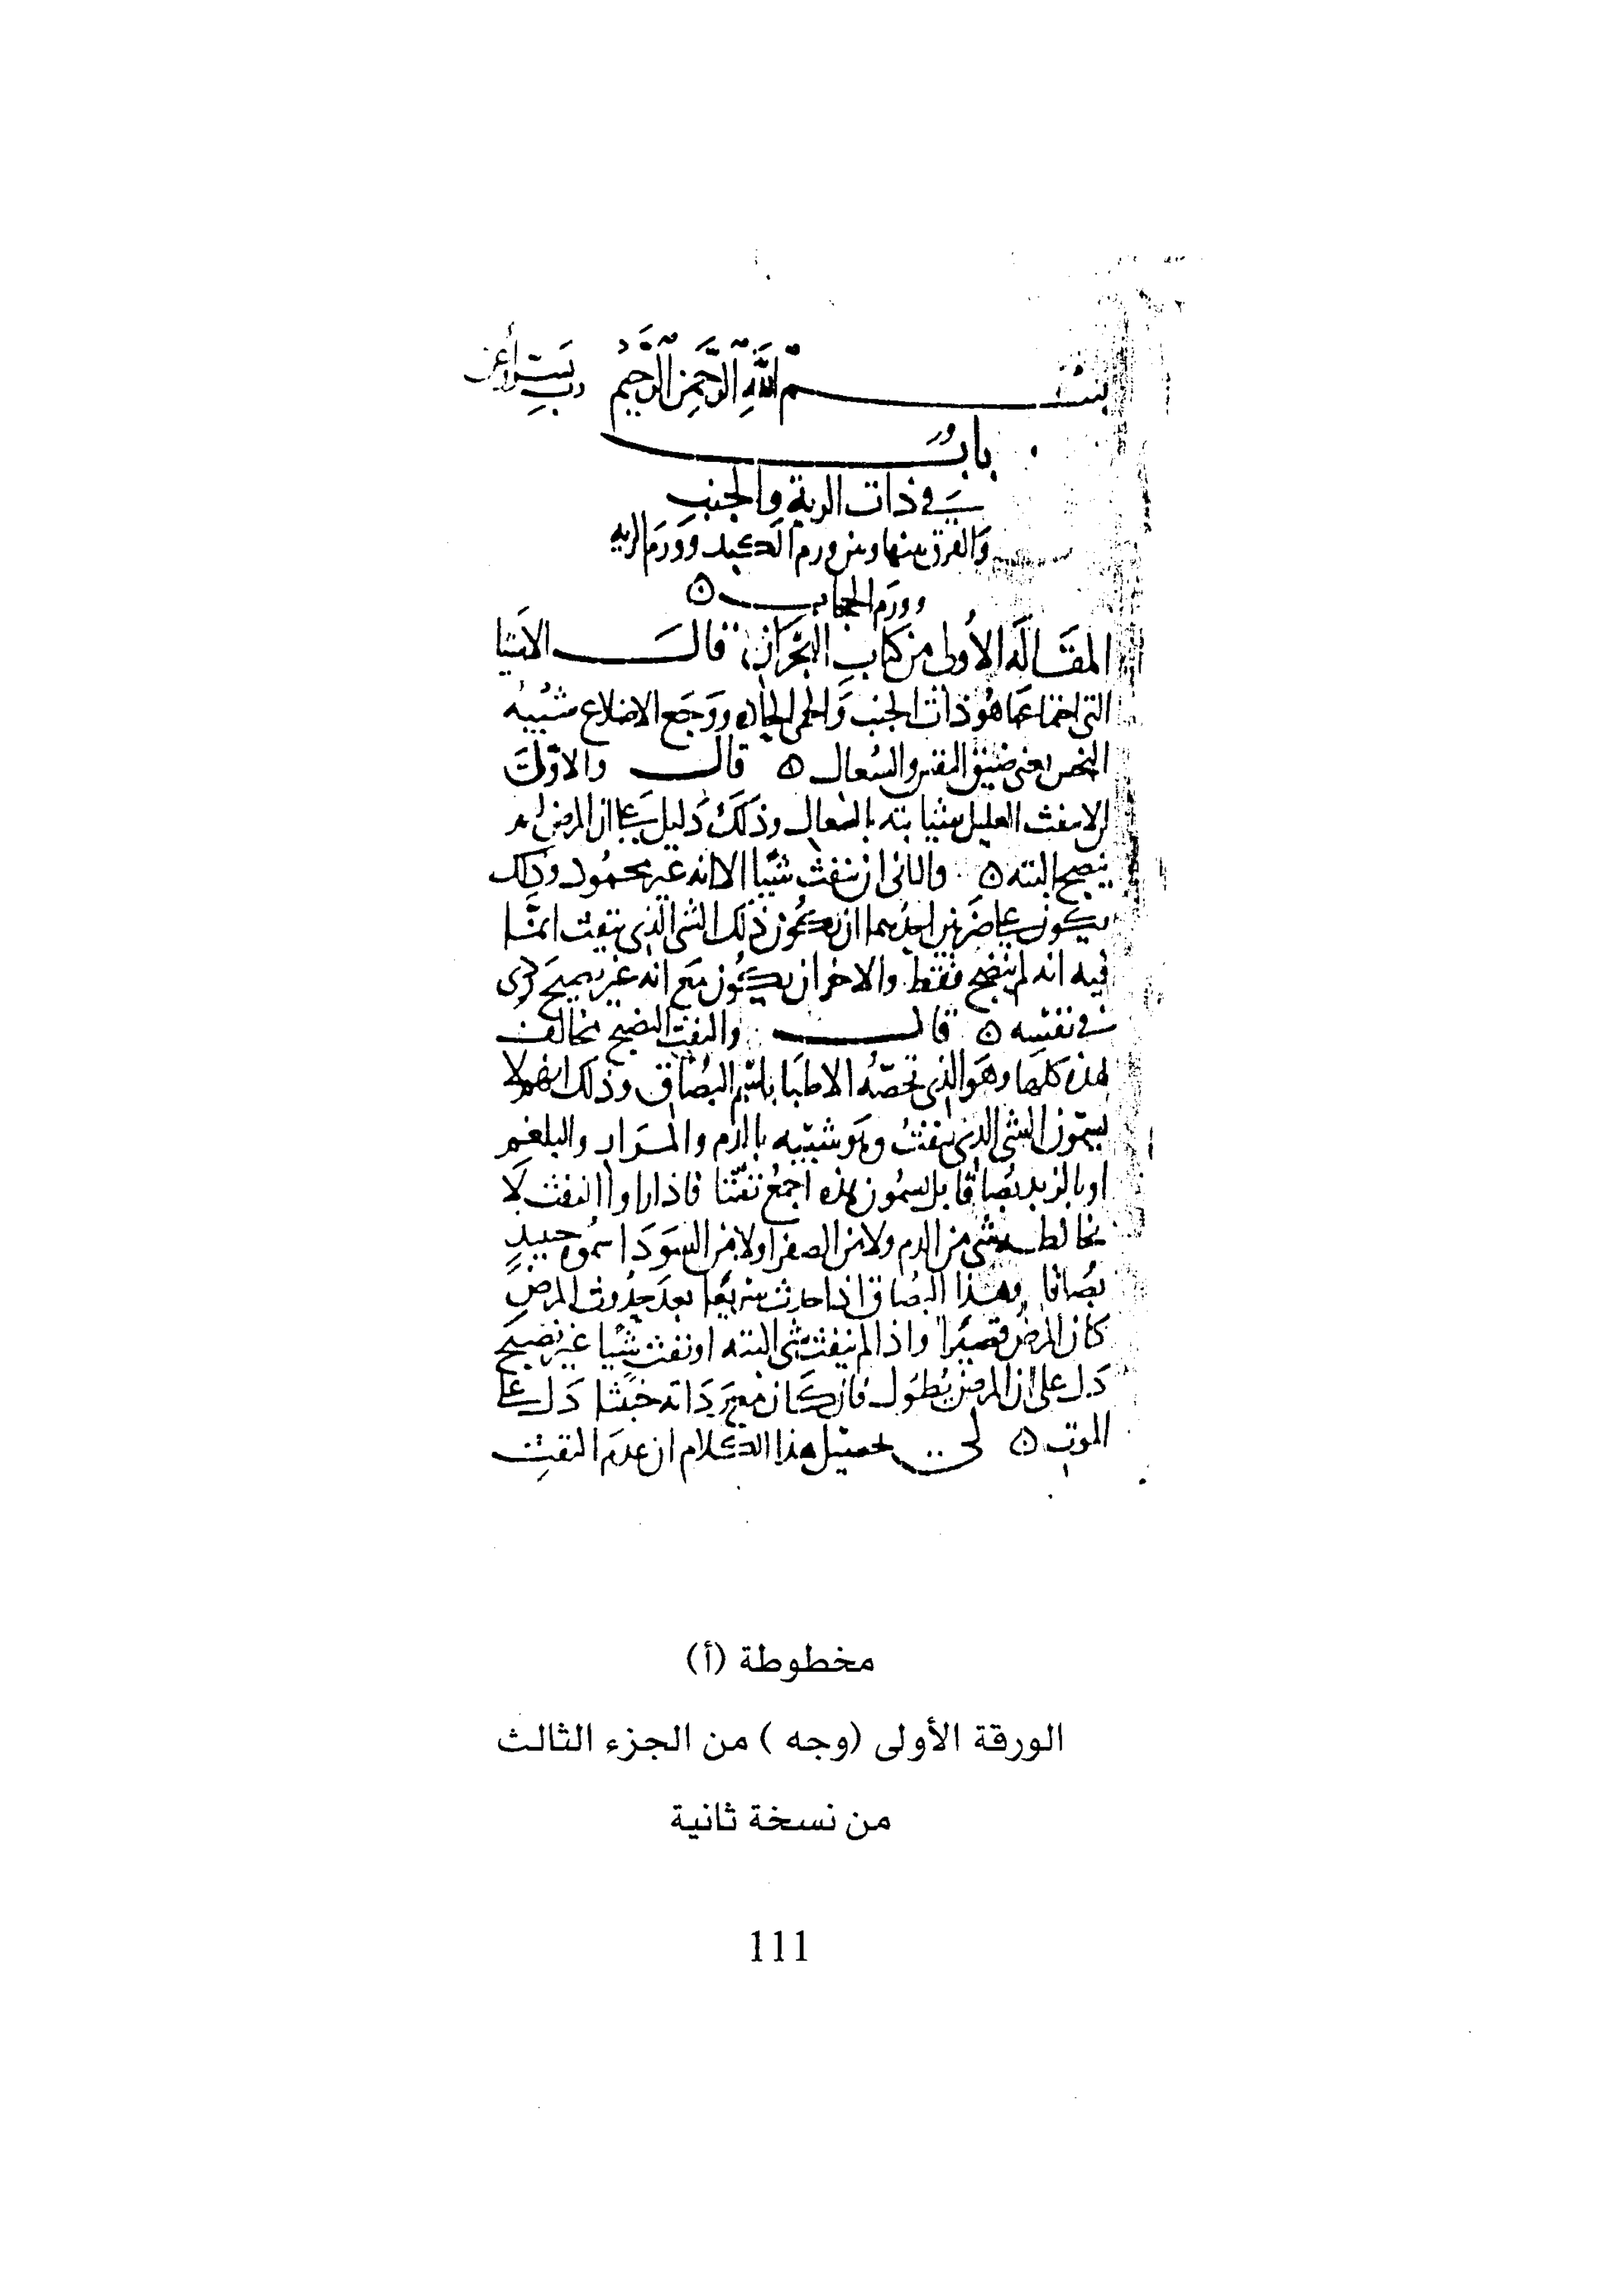 بسم الله الرحمن الرحيم رب يسر وأعن
باب
في ذات الرية والجنب
والفرق بينها وبين ورم الكبد وورم الريه
وورم الحجاب
المقاله الأولى من كتاب البحران قال الاشيا
التي اجتماعها هو ذات الجنب والحمى الحاده ووجع الاضلاع شبيه
النخس يعني ضيق النفس والسعال قال والاول
ان لا ينفث العليل شيا بته بالسعال وذلك دليل على ان المرض لم
ينضج البته والثاني ان ينفث شيا الا انه غير محمود وذلك
يكون على ضربين احدهما ان يكون ذلك الشي الذي ينفث انما
فيه انه لم ينضج فقط والاخر ان يكون مع انه غير نضيج ردى
في نفسه قال والنفث النضيج مخالف
لهذه كلها وهو الذي تخصه الاطبا باسم البصاق وذلك انهم لا
يسمون الشي الذي ينفث وهو شبيه بالدم والمرار والبلغم
او بالزبد بصاقا بل يسمون هذه اجمع نفثا فاذا راوا النفث لا
يخالطه شي من الدم ولا من الصفرا ولا من السودا سموه حينيذ
بصاقا وهذا البصاق اذا حدث سريعا بعد حدوث المرض
كان المرض قصيرا واذا لم ينفث شي البته او نفث شيا غير نضيج
دل على ان المرض يطول فان كان مع رداته خبيثا دل على
الموت لي تحصيل هذا الكلام ان عدم النفث
مخطوطة (أ)
الورقة الأولى (وجه ) من الجزء الثالث
من نسخة ثانية
111